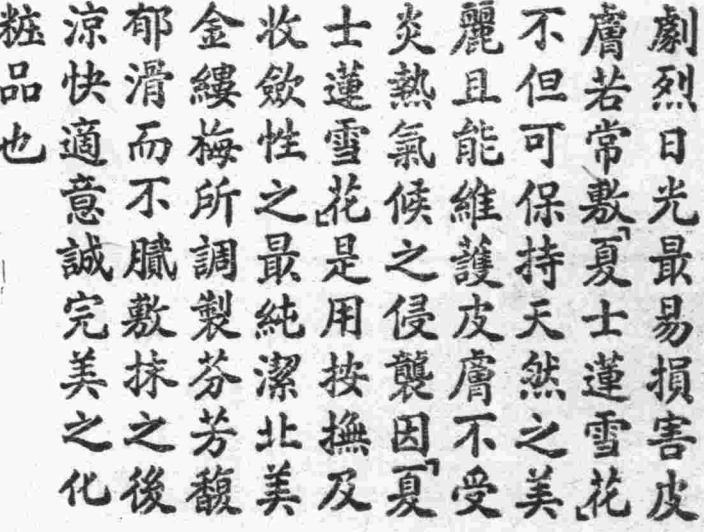 劇烈日光最易損害皮
膚若常敷「夏士蓮雪花」
不但可保持天然之美
麗且能維護皮膚不受
炎熱氣候之侵襲因「夏
士蓮雪花」是用按撫及
收斂性之最純潔北美
金縷梅所調製芬芳馥
郁滑而不膩敷抹之後
涼快適意誠完美之化
粧品也